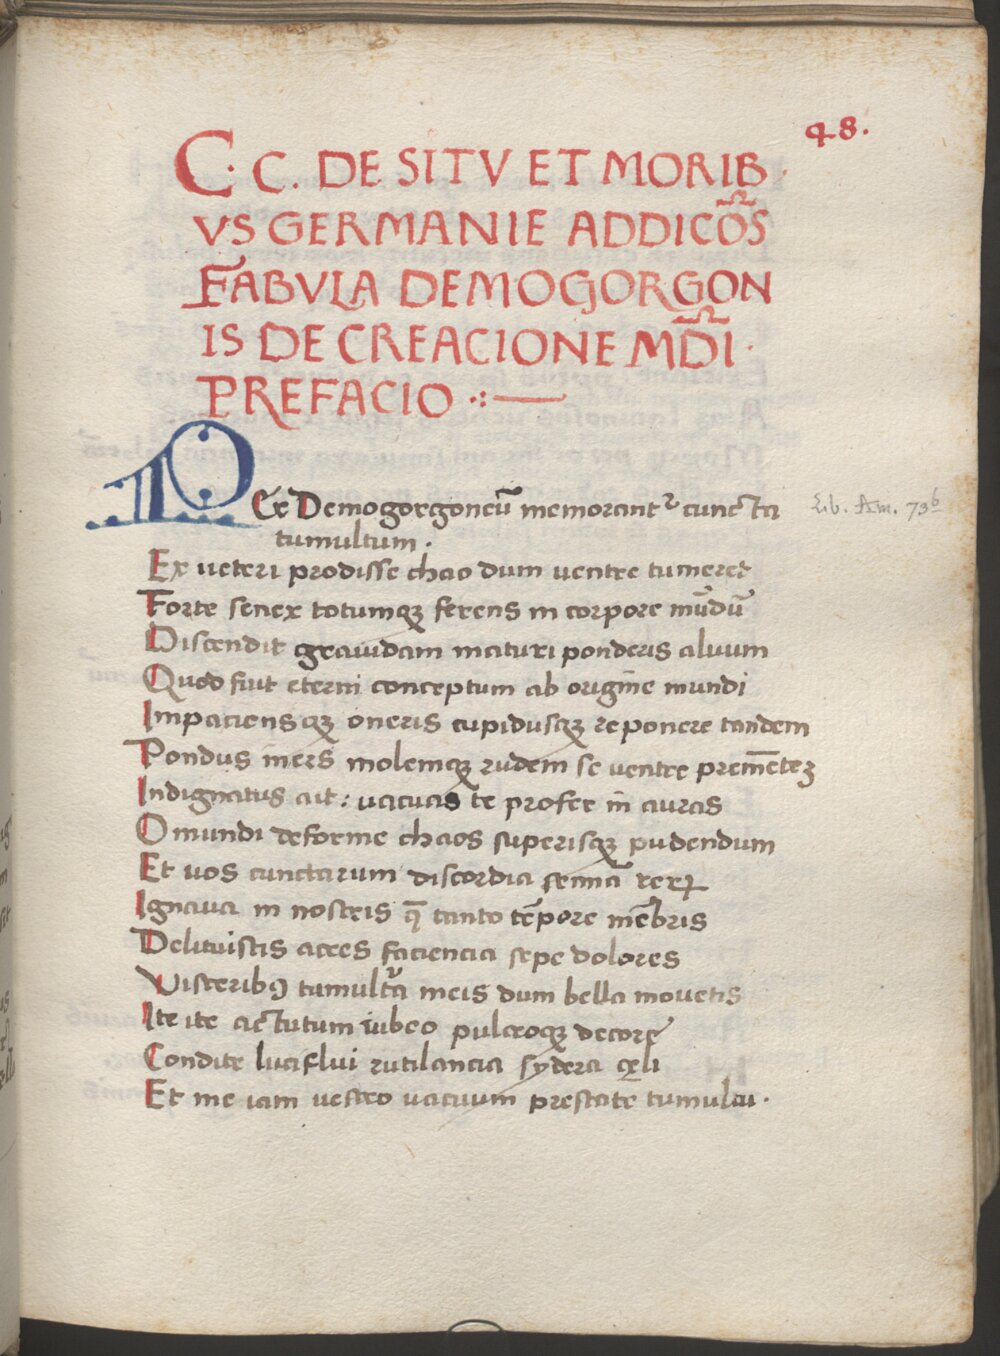 48.
C. C. DE SITV ET MORIB
VS GERMANIE ADDICO̅S
FABVLA DEMOGORGON
IS DE CREACIONE MD̅I ·
PREFACIO
Per Demogorgoneū memorantᷣ cuncta
tumultum .
Ex veteri prodisse chao dum ventre tumeret
Forte senex totumqꝫ ferens in corpore mūdū
Discendit grauidam maturi ponderis aluum
Quod fiut eterni conceptum ab origine mundi
Impaciensqꝫ oneris cupidusqꝫ reponere tandem
Pondus iners molemqꝫ rudem se ventre premēteꝫ
Indignatus ait : vacuas te profer in auras
O mundi deforme chaos superisqꝫ pudendum
Et vos cunctarum discordia semīa rerꝝ
Ignaua in nostris q̄ tanto tēpore mēbris
Delituistis acres faciencia sepe dolores
Visceribꝰ tumultū meis dum bella mouetis
Ite ite actutum iubeo pulcroqꝫ decore
Condite luciflui rutilancia sydera cęli
Et me iam vestro vacuum prestate tumultu .
Lib. Am. 73b